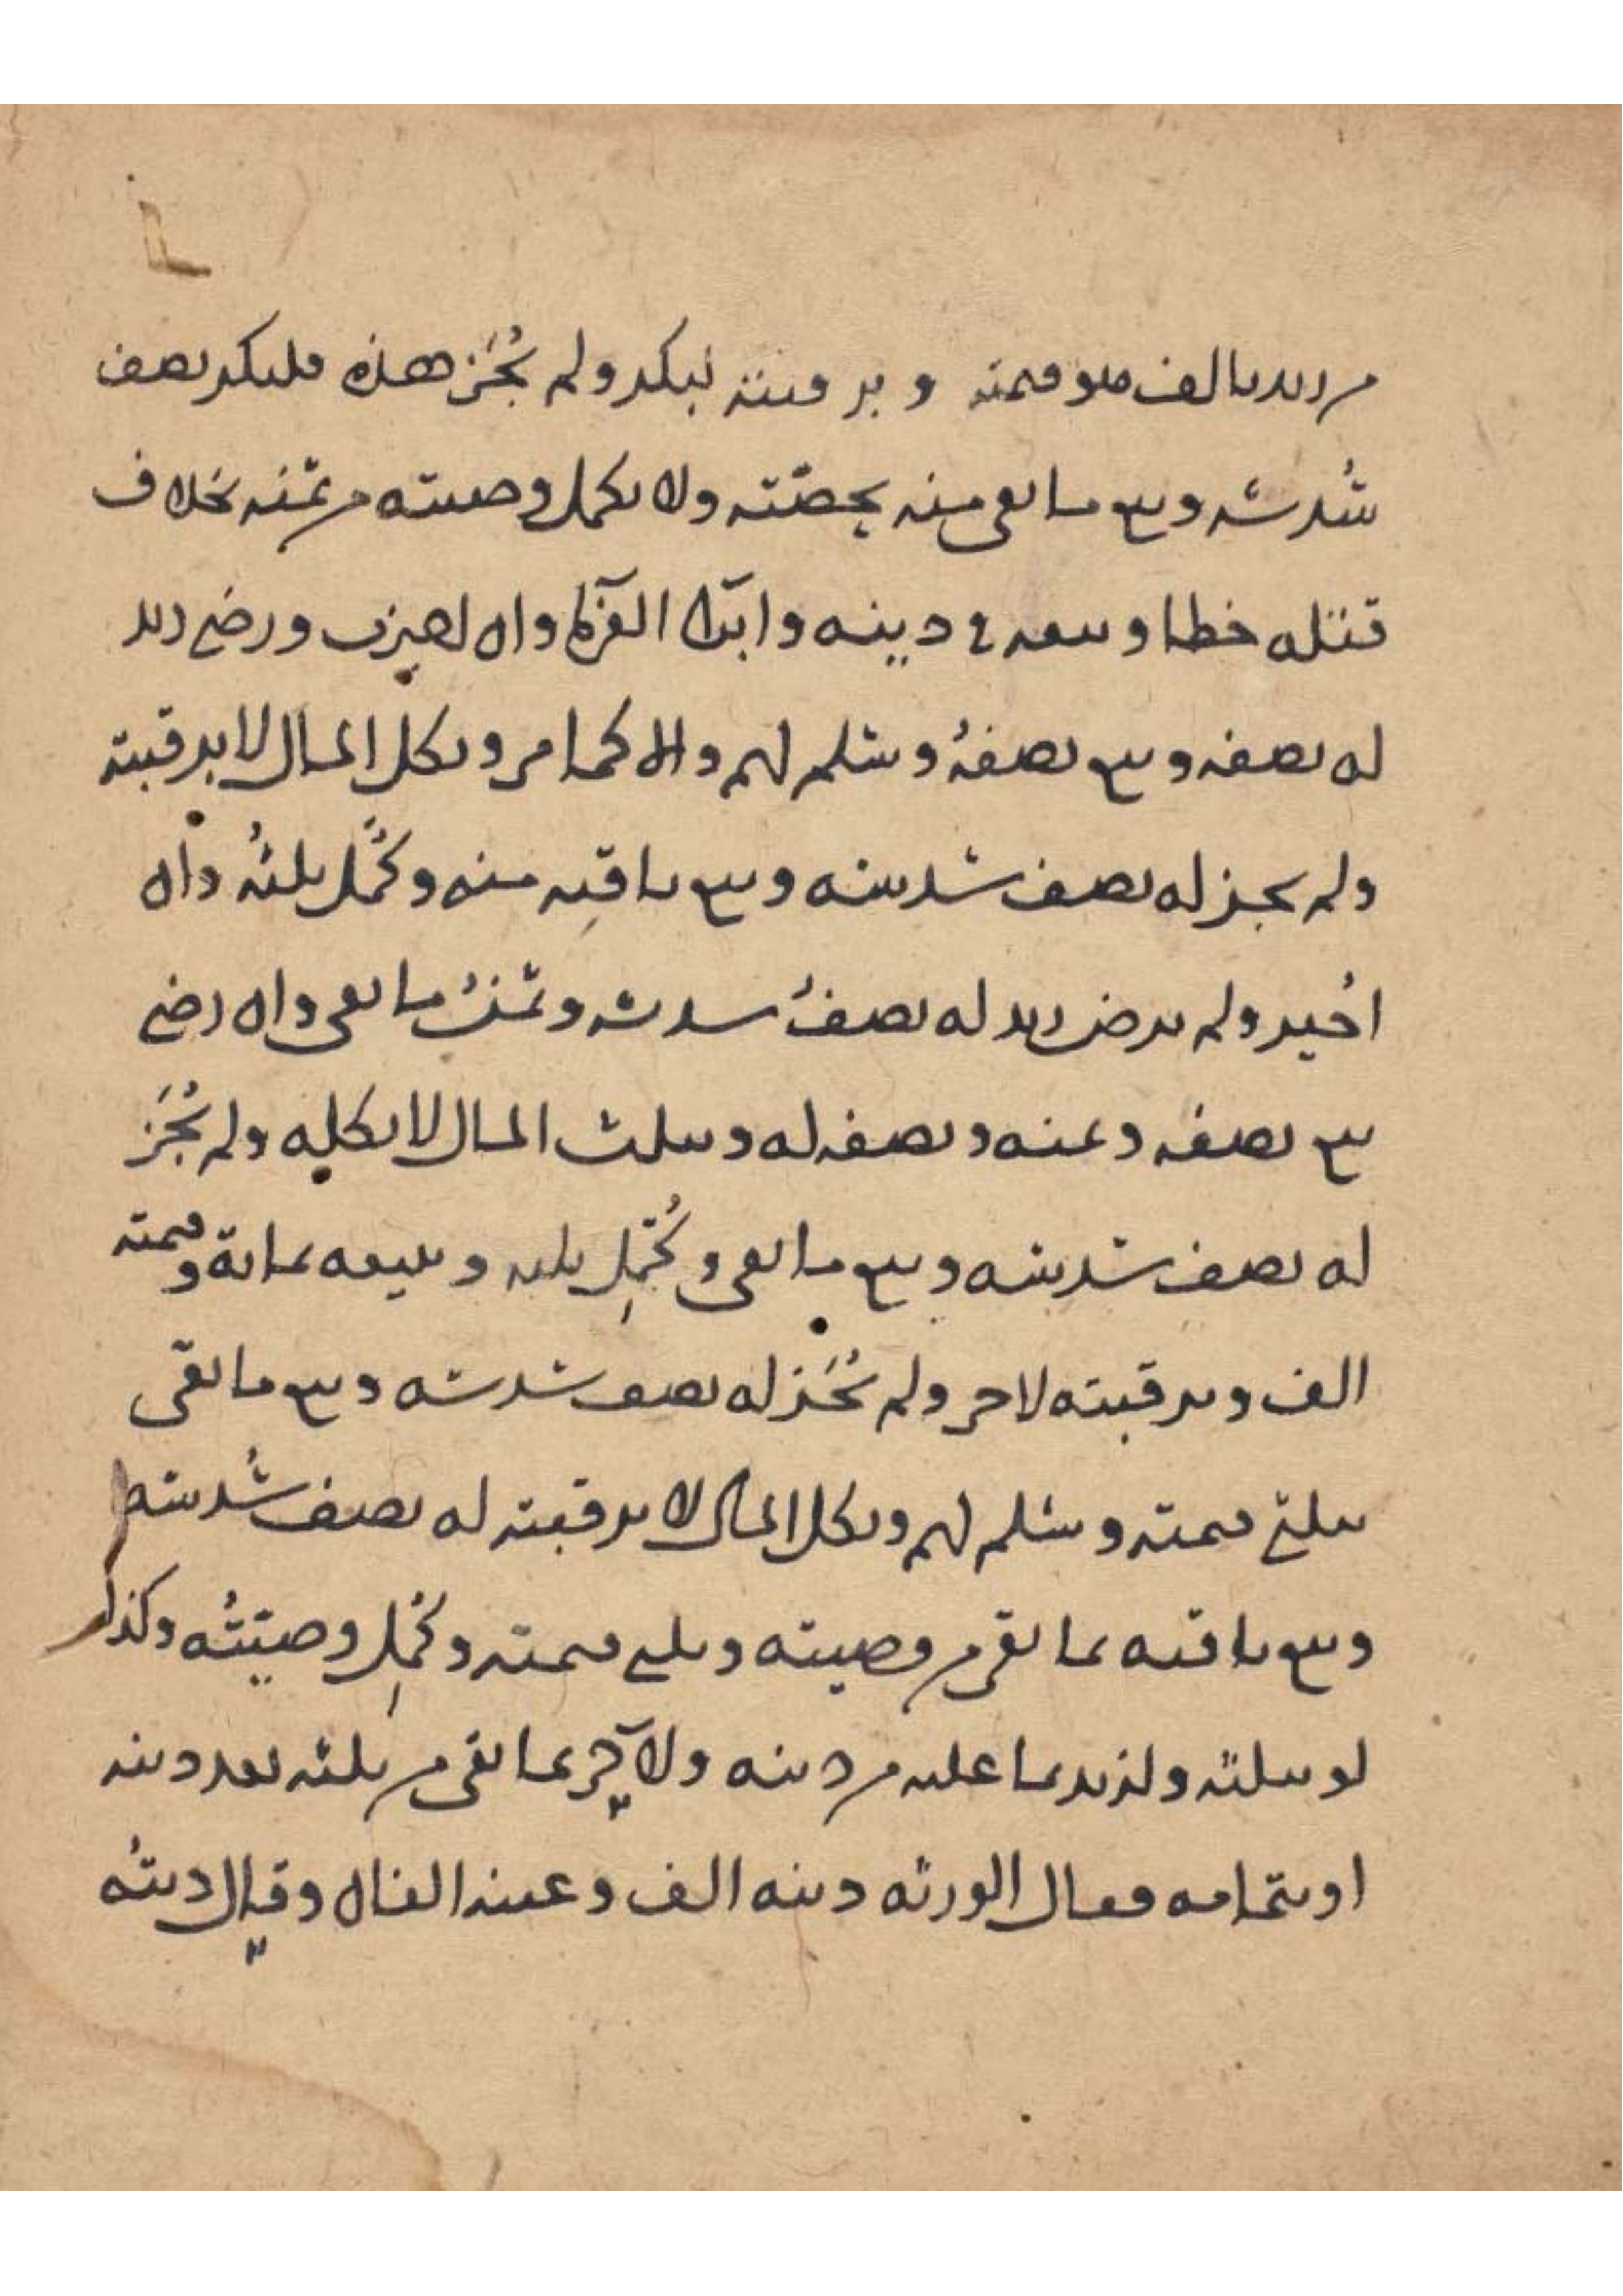 من زيد بالف هو قيمته و برقبته لبكر ولم تُجَز هذه فلبكر نصف
سُدسه وبيع ما بقي منه بحصّته ولا تكمل وصيته من ثمنه بخلاف
قتله خطا و في دينه وان اجيزت ورضي زيد
له نصفه وبيع نصفهُ وسلم لهم وان كما مر وبكل المال لا برقبته
ولم يجز له نصف سدسه وبيع باقيه منه وكمّل ثلثهُ وان
اُجيز ولم يرض زيد له نصفُ سدسه وثمنُ ما بقي وان رضي
بيع نصفه وعنه ونصفه له وبثلث المال لا بكله ولم تُجَز
له نصف سدسه وبيع ما بقي وكُمّل ثلثه وببيعه بمائة وقيمته
الف وبرقبته لاخر ولم تُجَز له نصف سدسه وبيع ما بقي
بثلثي قيمته وسلم لهم وبكل المال لا برقبته له نصف سُدسه
وبيع باقيه بما بقي من وصيته وثلثي قيمته وكُمّل وصيّتُه وكذا
لو بثلثه ولزيد بما عليه من دينه ولآخر بما بقي من ثلثه بعد دينه
او بتمامه فقال الورثه دينه الف وعينه الفان وقال دينُه